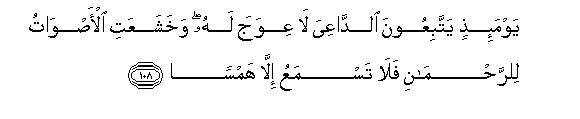 يَوْمَئِذٍ يَتَّبِعُونَ ٱلدَّاعِىَ لَا عِوَجَ لَهُۥ ۖ وَخَشَعَتِ ٱلْأَصْوَاتُ
لِلرَّحْمَـٰنِ فَلَا تَسْمَعُ إِلَّا هَمْسًا ١٠٨